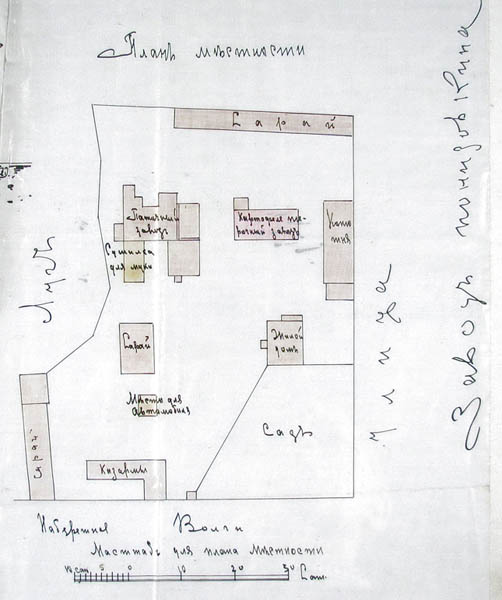 Планъ мѣстности
Сарай
Паточный
заводъ
Сушилка
для муки
Картофеле те-
рочный заводъ
Коню
шня
Лугъ
Сарай
Жилой
домъ
Мѣсто для
автомобиля
Садъ
Сарай
Казармы
Улица
Заводъ
Набережная Волги
Масштабъ для плана мѣстности
10 саж 5 0 10 20 30 Саж.